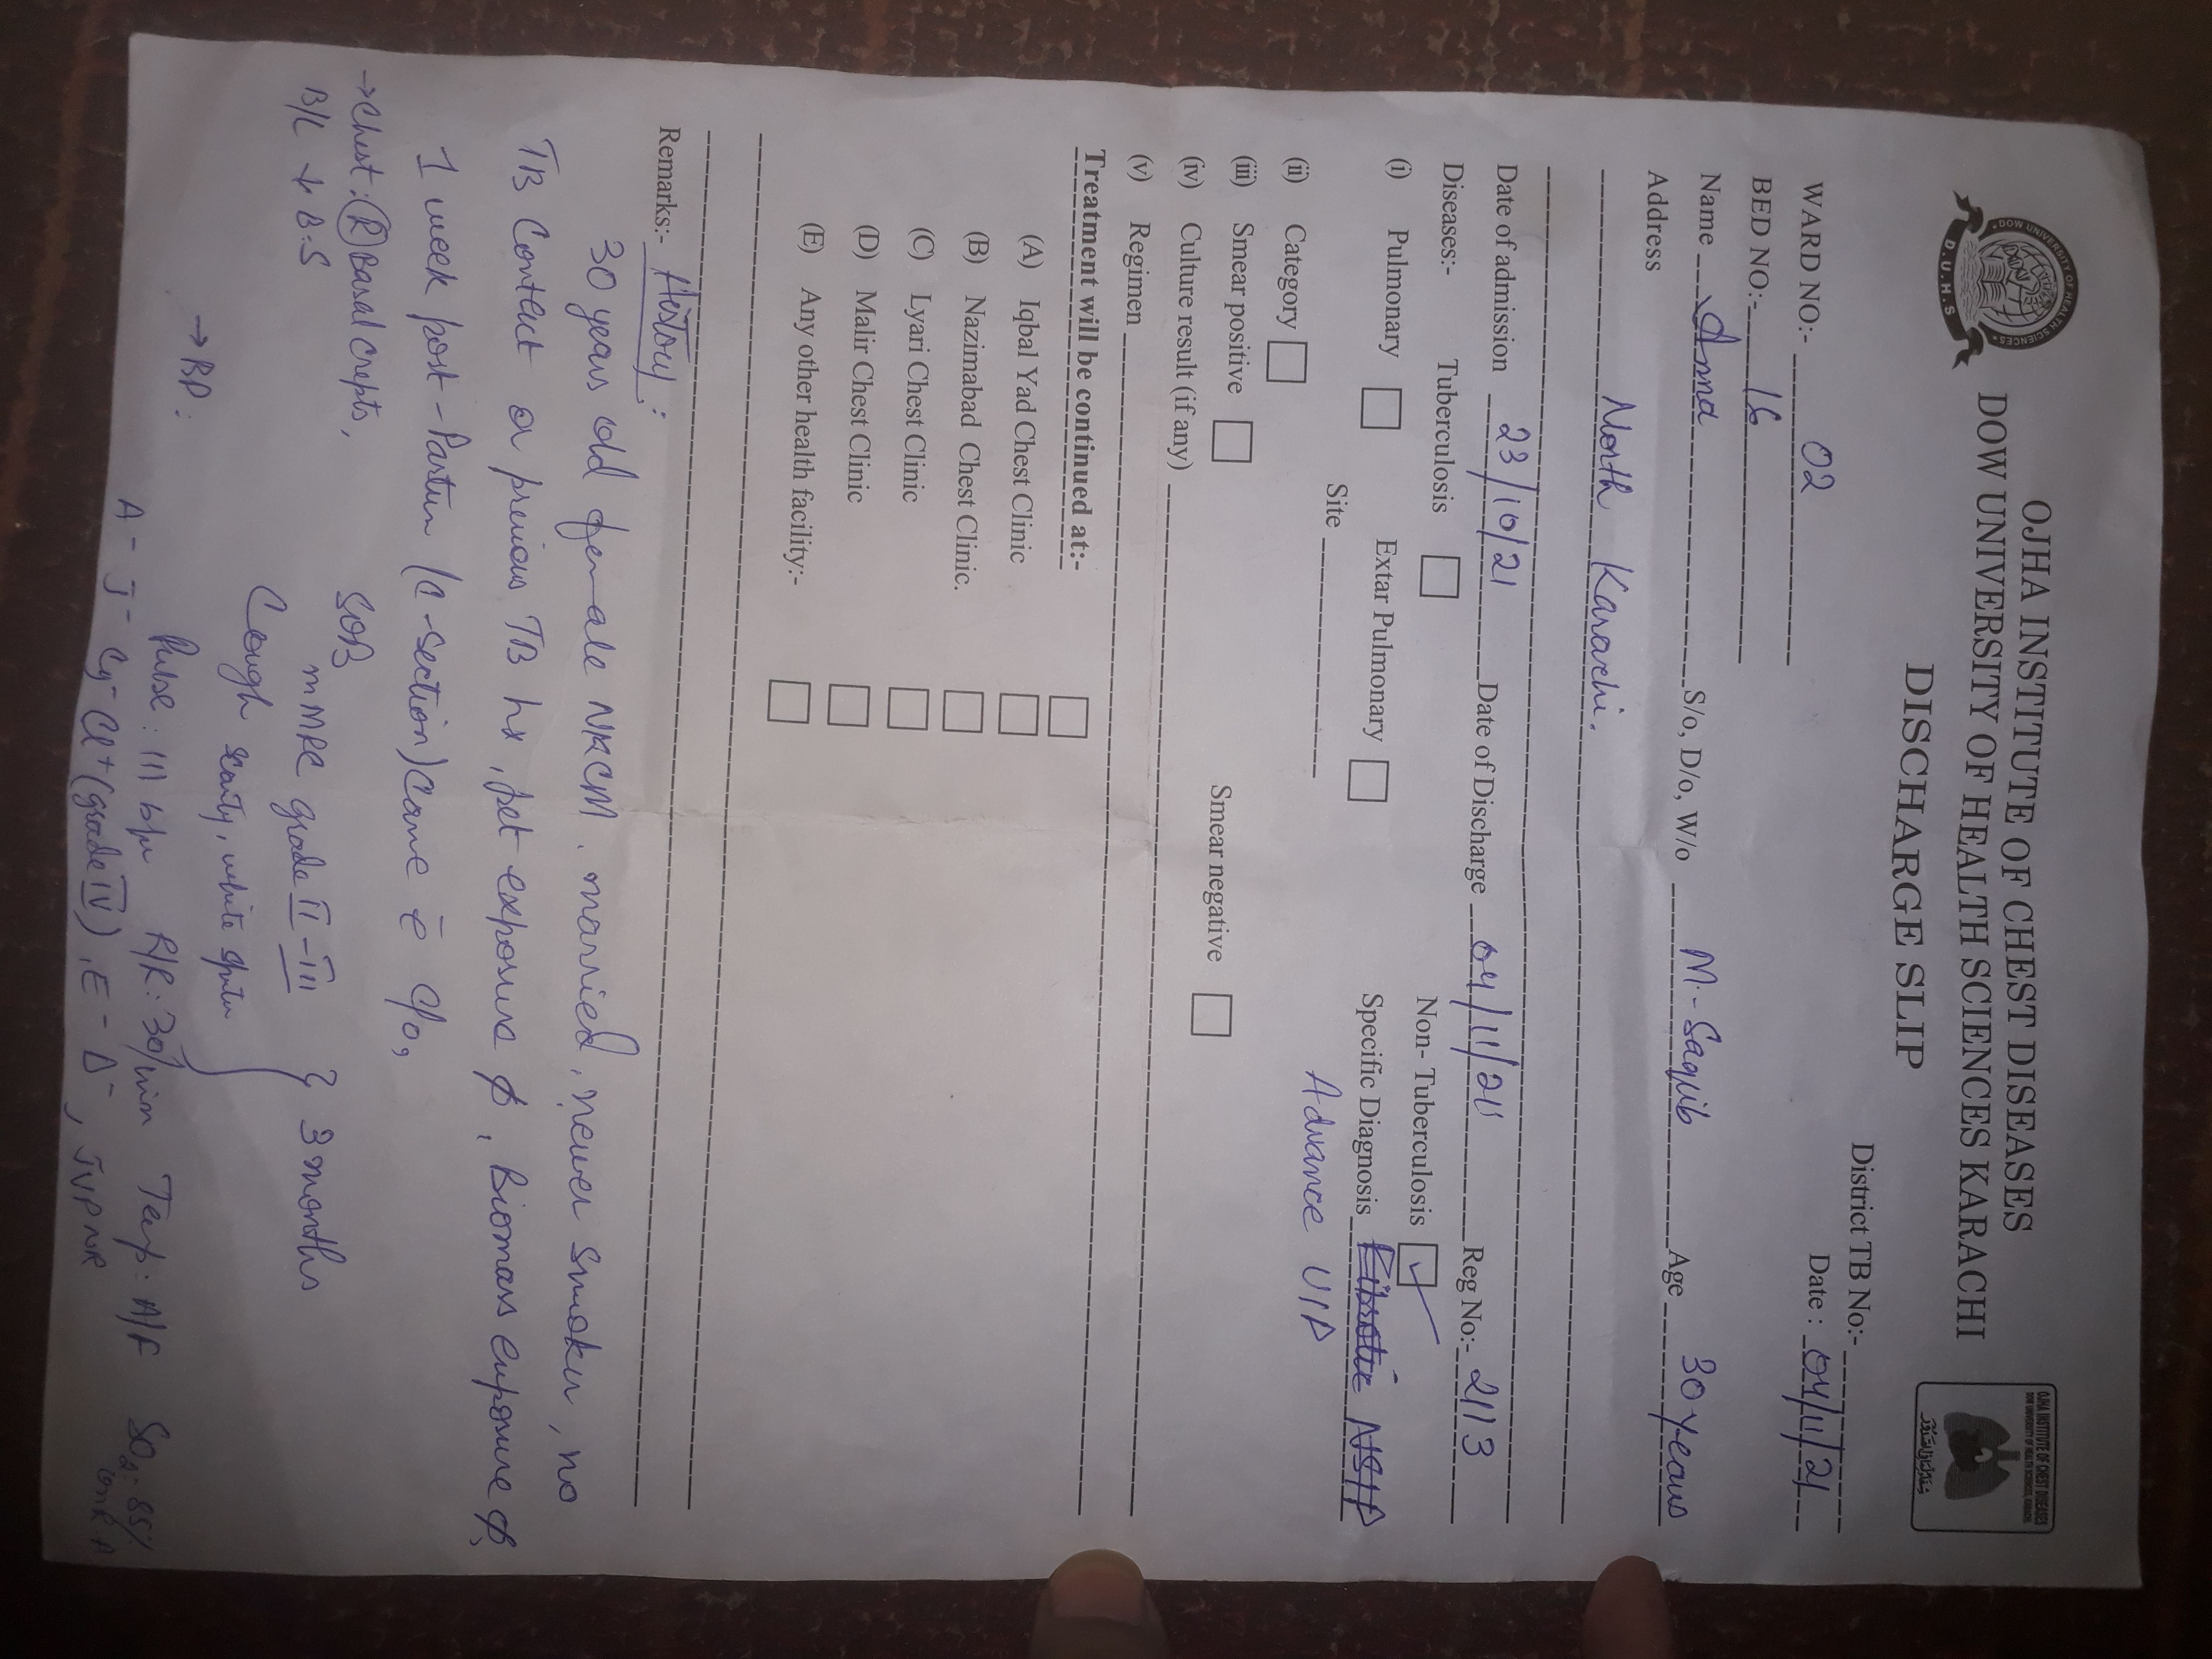 OJHA INSTITUTE OF CHEST DISEASES
DOW UNIVERSITY OF HEALTH SCIENCES KARACHI
DISCHARGE SLIP
DOW UNIVERSITY OF HEALTH SCIENCES
D.U.H.S
OJHA INSTITUTE OF CHEST DISEASES
District TB No:-
WARD NO:- 02 Date : 04/11/21
BED NO:- 16
Name Anna S/o, D/o, W/o M. Saquib Age 30 years
Address North Karachi.
Date of admission 23/10/21 Date of Discharge 04/11/21 Reg No:- 2113
Diseases:- Tuberculosis Non- Tuberculosis ✓
(i) Pulmonary Extar Pulmonary Specific Diagnosis Fibrotic NSIP
Site Advance UIP
(ii) Category
(iii) Smear positive Smear negative
(iv) Culture result (if any)
(v) Regimen
Treatment will be continued at:-
(A) Iqbal Yad Chest Clinic
(B) Nazimabad Chest Clinic.
(C) Lyari Chest Clinic
(D) Malir Chest Clinic
(E) Any other health facility:-
Remarks:- History:
30 years old female NKCM, married, never smoker, no
TB contact or previous TB hx, pet exposure ∅, Biomass exposure ∅,
1 week post-Partum (C-section) came c̄ c/o,
SOB
mMRC grade II-III } 3 months
Cough scanty, white sputum
→ Chest: (R) basal crepts,
B/L ↓ B.S
→ BP: Pulse: 111 bpm R/R: 30/min Temp: A/F SO2: 85%
A- J- Cy- Cl+ (grade IV), E- D-, JVP NR